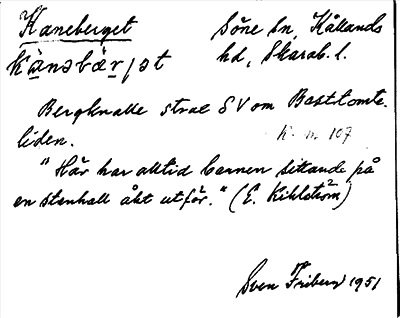 Kaneberget Söne sn, Kållands
hd, Skarab. l.
Bergknalle strax SV om Basttomte-
liden.
107
"Här har alltid barnen sittande på
en stenhall åkt utför." (E. Kihlström)
Sven Friberg 1951